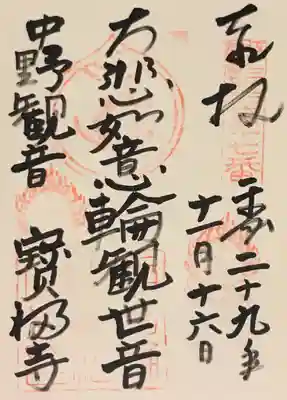 奉拝
平成二十九年
十一月十六日
大悲如意輪観世音
中野観音 寳福寺